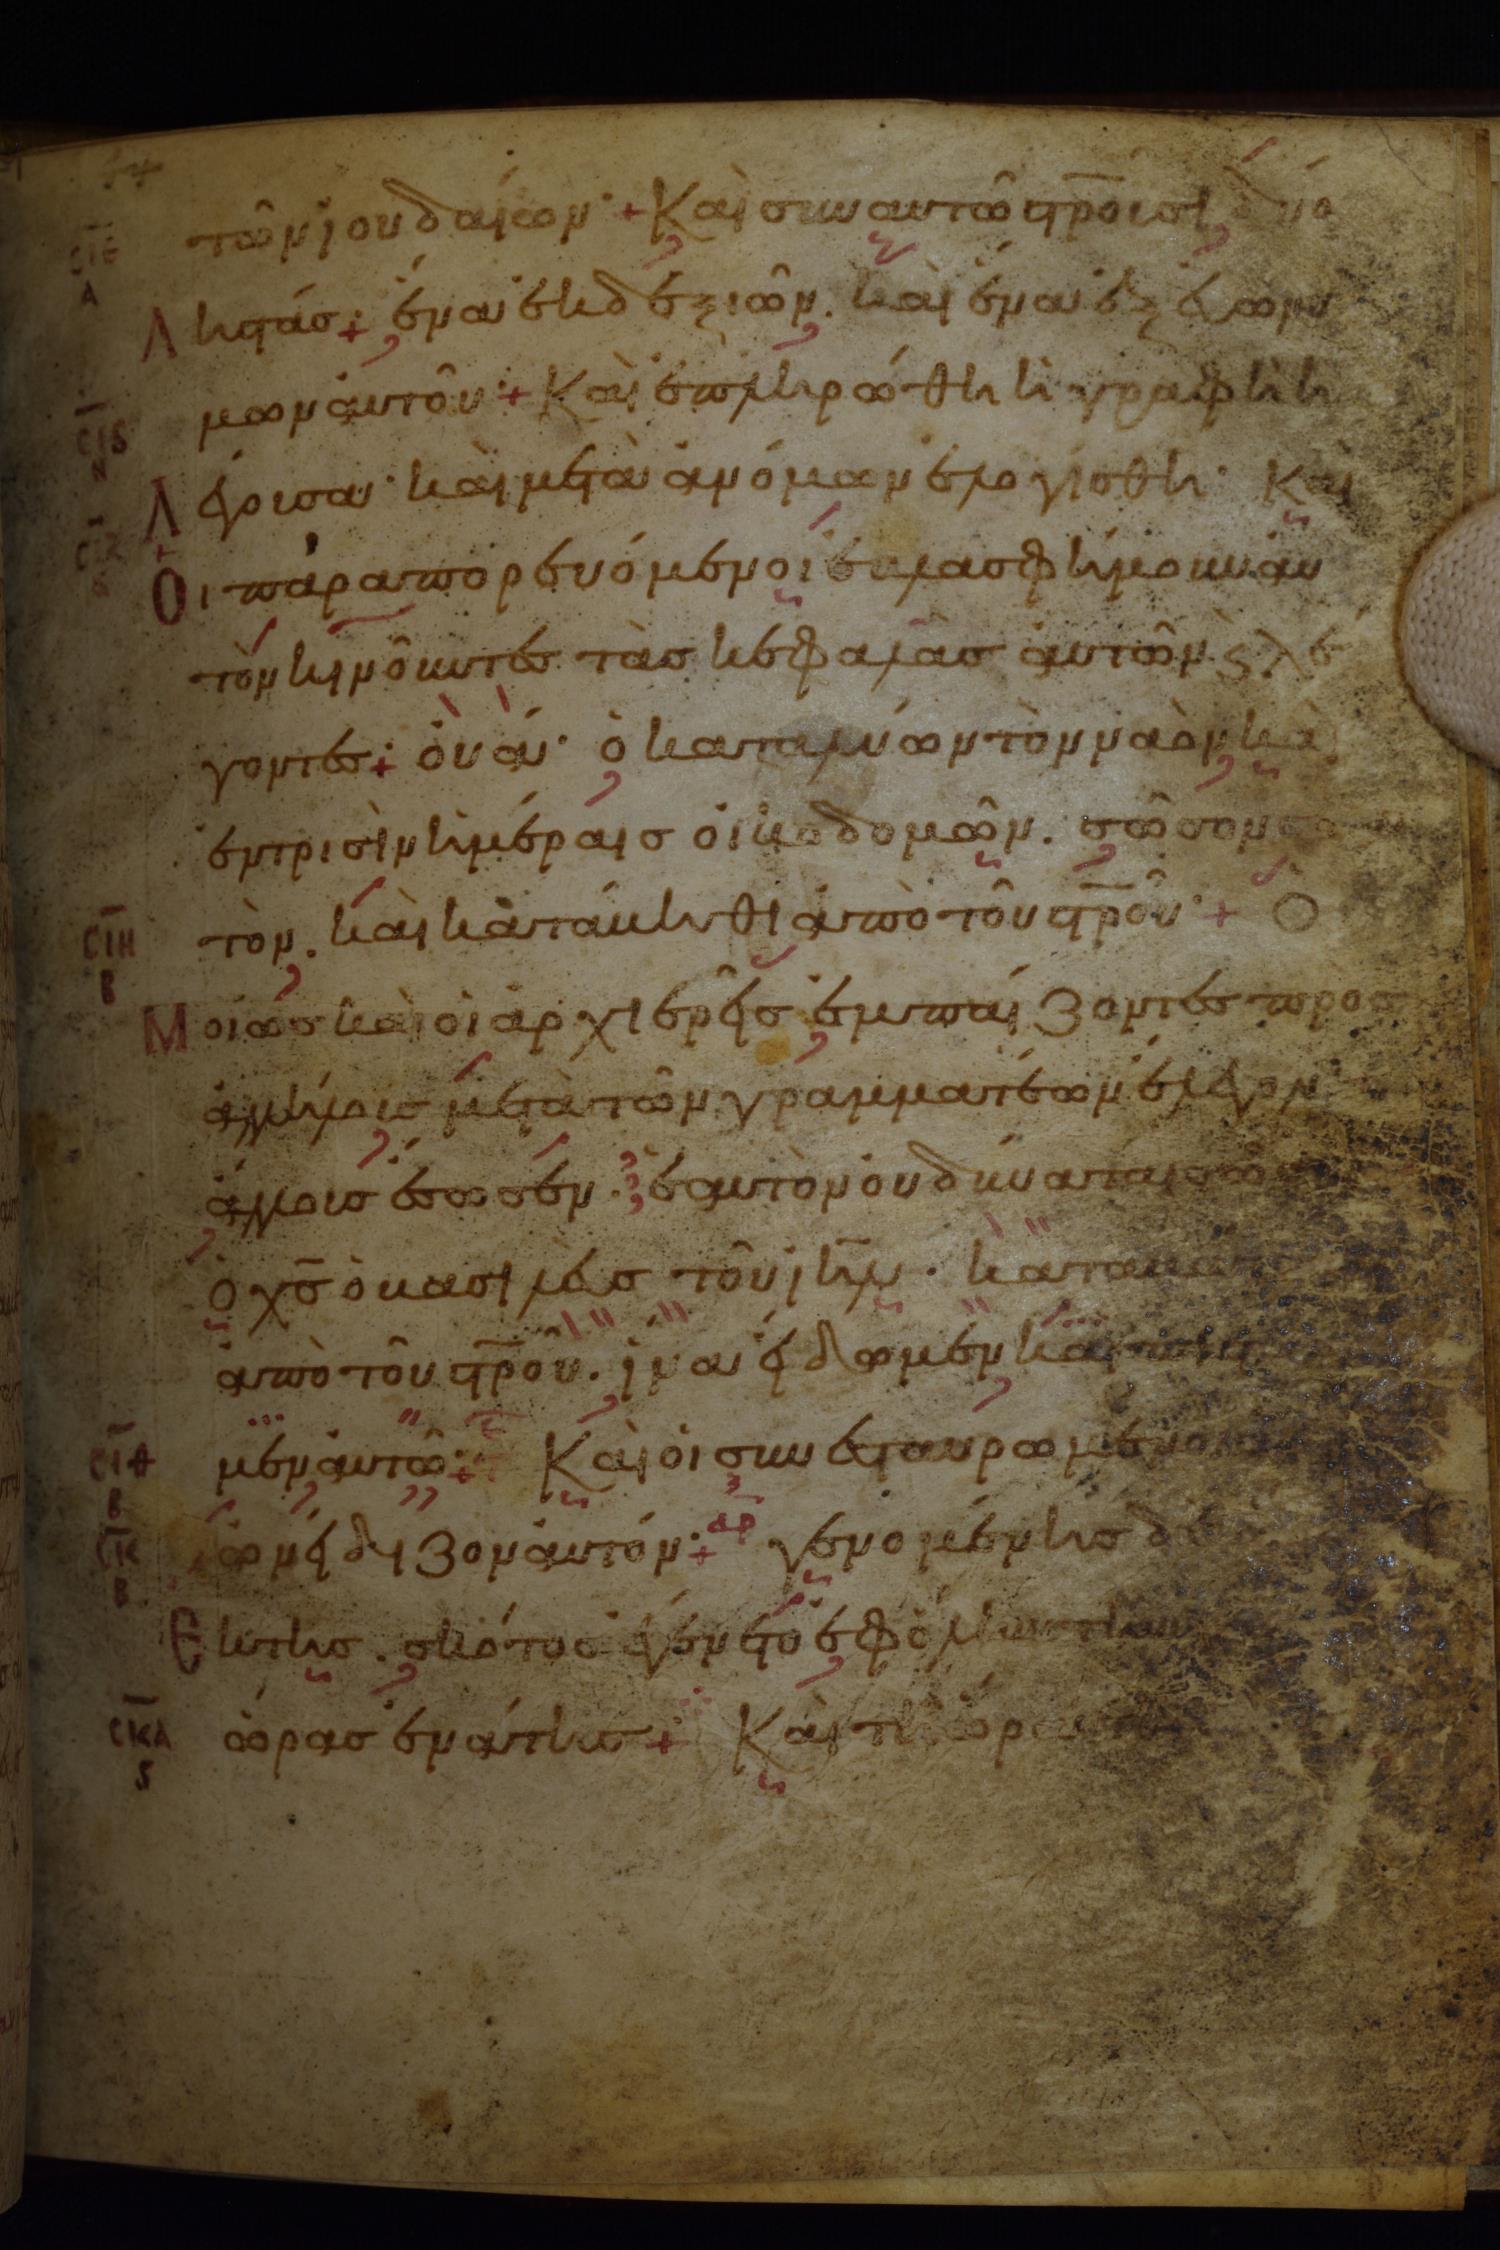 τῶν ἰουδαίων· + Καὶ συν αυτῶ στ̅ροισι δύο
ληστάσ· + ἕνα ἐκ δεξιῶν. καὶ ἕνα ἐξ ἐυωνυ
μων ἀυτοῦ· + Καὶ ἐπληρώθη ἡ γραφὴ ἡ
λέγουσα· καὶ μετὰ ἀνόμων ἐλογίσθη· Και
Οι παραπορευόμενοι ἐβλασφήμουν ἀυ
τὸν κινοῦντεσ τὰσ κεφαλὰσ ἀυτῶν ϗ λέ
γοντεσ· + ὀυά· ὁ καταλύων τὸν ναὸν καὶ
ἐν τρισὶν ἡμέραισ οἰκοδομῶν. σῶσον σε
τὸν. καὶ κατάβηθι ἀπὸ τοῦ στ̅ροῦ· + Ο
Μοίωσ καὶ οἱ ἀρχιερεῖσ ἐμπαίζοντεσ προσ
ἀλλήλουσ μετὰ τῶν γραμματέων ἔλεγον
ἄλλουσ ἔσωσεν. ἑαυτὸν ὀυ δύναται σῶ
ὁ χ̅σ ὁ βασιλεὺσ τοῦ ἰη̅λ. καταβάτω
ἀπὸ τοῦ στ̅ροῦ. ἵνα ἴδωμεν καὶ πιστ
μεν ἀυτῶ· + Και οἱ συν εσταυρωμένοι
ὠνείδιζον ἀυτόν· + γενομένησ δε
Εκτησ. σκότοσ ἐγένετο ἐφ ὅλην την
ὥρασ ἐνάτησ + Καὶ τῆ ὥρα
C̅Ι̅Ε
Α
C̅Ι̅Ϛ
C̅Ι̅Η
Β
C̅Ι̅Θ
Β
C̅Κ̅
Β
C̅Κ̅Α
Ϛ